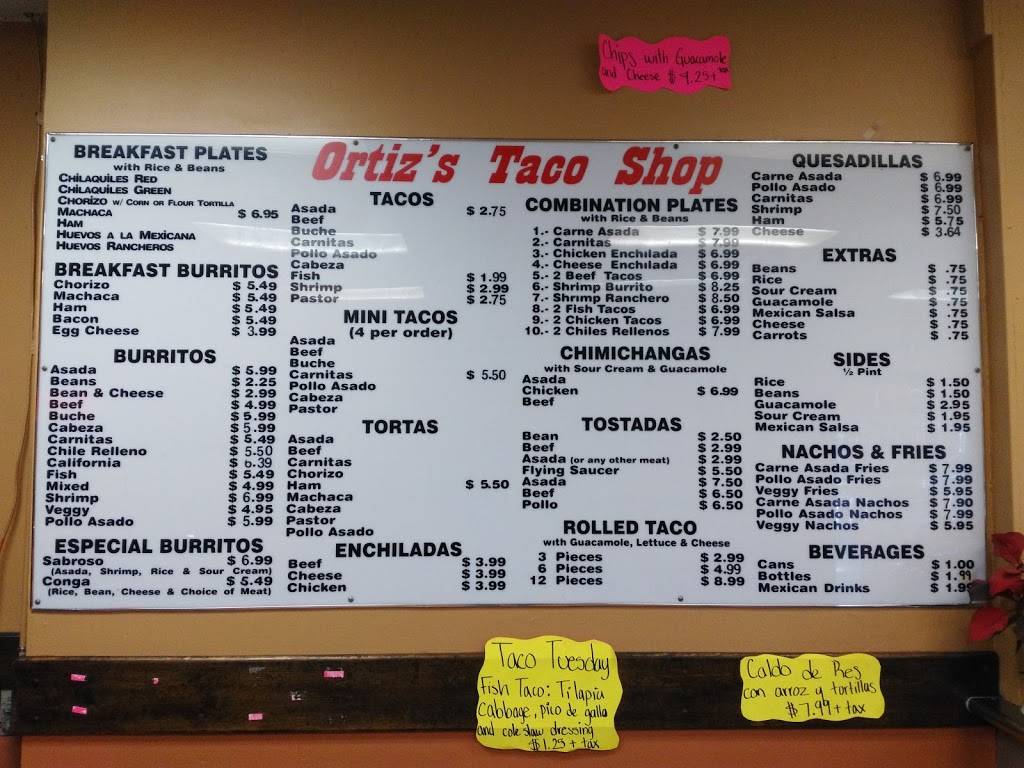 Chips with Guacamole
and Cheese $4.25+ tax
Ortiz's Taco Shop
BREAKFAST PLATES
with Rice & Beans
CHILAQUILES RED
CHILAQUILES GREEN
CHORIZO W/ CORN OR FLOUR TORTILLA
MACHACA $ 6.95
HAM
HUEVOS A LA MEXICANA
HUEVOS RANCHEROS
BREAKFAST BURRITOS
Chorizo $ 5.49
Machaca $ 5.49
Ham $ 5.49
Bacon $ 5.49
Egg Cheese $ 3.99
BURRITOS
Asada $ 5.99
Beans $ 2.25
Bean & Cheese $ 2.99
Beef $ 4.99
Buche $ 5.99
Cabeza $ 5.99
Carnitas $ 5.49
Chile Relleno $ 5.50
California $ 6.39
Fish $ 5.49
Mixed $ 4.99
Shrimp $ 6.99
Veggy $ 4.95
Pollo Asado $ 5.99
ESPECIAL BURRITOS
Sabroso $ 6.99
(Asada, Shrimp, Rice & Sour Cream)
Conga $ 5.49
(Rice, Bean, Cheese & Choice of Meat)
TACOS
Asada $ 2.75
Beef
Buche
Carnitas
Pollo Asado
Cabeza
Fish $ 1.99
Shrimp $ 2.99
Pastor $ 2.75
MINI TACOS
(4 per order)
Asada
Beef
Buche
Carnitas $ 5.50
Pollo Asado
Cabeza
Pastor
TORTAS
Asada
Beef
Carnitas
Chorizo
Ham $ 5.50
Machaca
Cabeza
Pastor
Pollo Asado
ENCHILADAS
Beef $ 3.99
Cheese $ 3.99
Chicken $ 3.99
COMBINATION PLATES
with Rice & Beans
1.- Carne Asada $ 7.99
2.- Carnitas $ 7.99
3.- Chicken Enchilada $ 6.99
4.- Cheese Enchilada $ 6.99
5.- 2 Beef Tacos $ 6.99
6.- Shrimp Burrito $ 8.25
7.- Shrimp Ranchero $ 8.50
8.- 2 Fish Tacos $ 6.99
9.- 2 Chicken Tacos $ 6.99
10.- 2 Chiles Rellenos $ 7.99
CHIMICHANGAS
with Sour Cream & Guacamole
Asada
Chicken $ 6.99
Beef
TOSTADAS
Bean $ 2.50
Beef $ 2.99
Asada (or any other meat) $ 2.99
Flying Saucer $ 5.50
Asada $ 7.50
Beef $ 6.50
Pollo $ 6.50
ROLLED TACO
with Guacamole, Lettuce & Cheese
3 Pieces $ 2.99
6 Pieces $ 4.99
12 Pieces $ 8.99
QUESADILLAS
Carne Asada $ 6.99
Pollo Asado $ 6.99
Carnitas $ 6.99
Shrimp $ 7.50
Ham $ 5.75
Cheese $ 3.64
EXTRAS
Beans $ .75
Rice $ .75
Sour Cream $ .75
Guacamole $ .75
Mexican Salsa $ .75
Cheese $ .75
Carrots $ .75
SIDES
½ Pint
Rice $ 1.50
Beans $ 1.50
Guacamole $ 2.95
Sour Cream $ 1.95
Mexican Salsa $ 1.95
NACHOS & FRIES
Carne Asada Fries $ 7.99
Pollo Asado Fries $ 7.99
Veggy Fries $ 5.95
Carne Asada Nachos $ 7.90
Pollo Asado Nachos $ 7.99
Veggy Nachos $ 5.95
BEVERAGES
Cans $ 1.00
Bottles $ 1.99
Mexican Drinks $ 1.99
Taco Tuesday
Fish Taco: Tilapia
Cabbage, pico de gallo
and cole slaw dressing
$1.25 + tax
Caldo de Res
con arroz y tortillas
$7.99 + tax